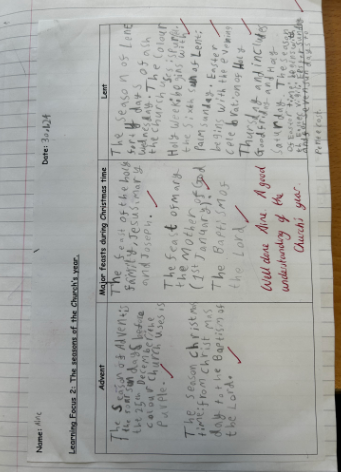 Name: Aine
Date: 30.6.24
Learning Focus 2: The seasons of the Church's year.
Advent
The season of Advent:
the four sundays before
the 25th December. the
colour the church uses is
purple.
The season Christmas
time: from Christmas
day to the Baptism of
the Lord.
Major feasts during Christmas time
The feast of the holy
family, Jesus, mary
and Joseph.
The feast of mary
the mother of God
(1st January)
The Baptism of
the Lord
Well done Aine. A good
understanding of the
Church's year.
Lent
The season of Lent
forty days
Wednesday. The colour
the church uses is purple.
Holy Week begins with
the sixth of Lent:
Palm Sunday. Easter
begins with the evening
celebration of Holy
Thursday and includes
Good Friday and Holy
Saturday. The season
Pentecost